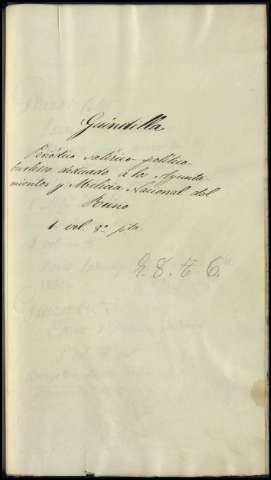 Guindilla
Periódico satírico político
burlesco dedicado á los Ayunta
mientos y Milicia Nacional del
Reino
1 vol 8º pta.